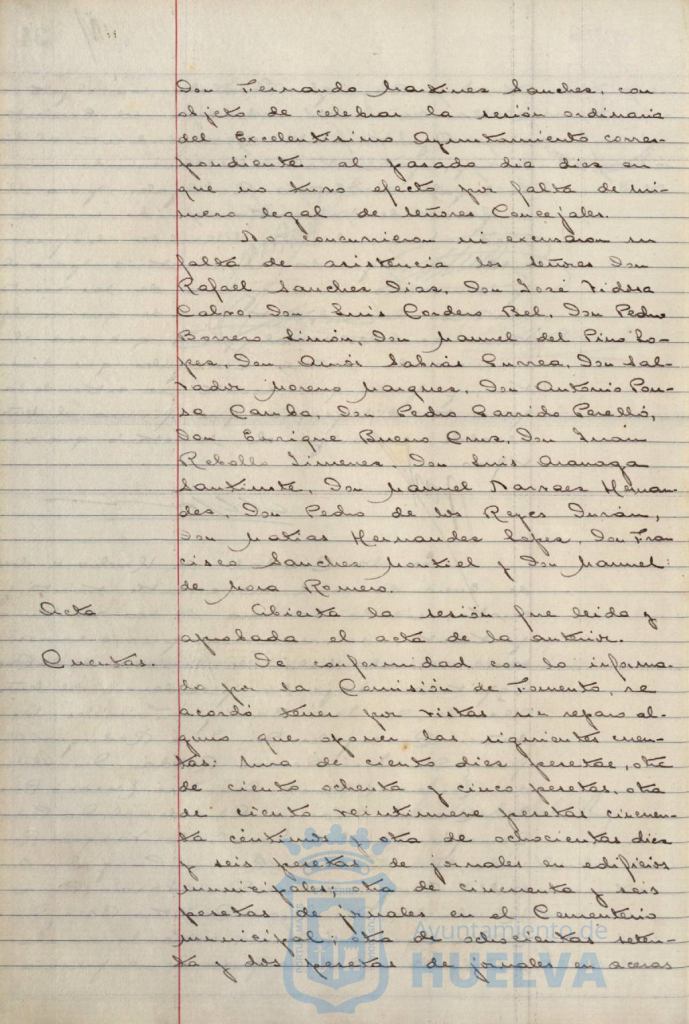 Don Fernando Martinez Sanchez, con
objeto de celebrar la sesión ordinaria
del Excelentisimo Ayuntamiento corres-
pondiente al pasado dia diez en
que no tuvo efecto por falta de nú-
mero legal de señores Concejales.
No concurrieron ni excusaron su
falta de asistencia los señores Don
Rafael Sanchez Diaz, Don José Tidera
Calvo, Don Luis Cordero Bel, Don Pedro
Borrero Limón, Don Manuel del Pino Lo-
pez, Don Amós Sabrás Gurrea, Don Sal-
vador Moreno Marquez, Don Antonio Pou-
sa Camba, Don Pedro Garrido Perelló,
Don Enrique Bueno Cruz, Don Juan
Rebollo Jimenez, Don Luis Aranaga
Don Manuel Narvaez Hernan-
dez, Don Pedro de los Reyes Durán,
Don Matias Hernandez Lopez, Don Fran
cisco Sanchez Montiel y Don Manuel
de Mora Romero.
Acta Abierta la sesión fue leida y
aprobada el acta de la anterior.
Cuentas. De conformidad con lo informa-
do por la Comisión de Fomento, se
acordó tener por vistas sin reparo al-
guno que oponer las siguientes cuen-
tas: Una de ciento diez pesetas, otra
de ciento ochenta y cinco pesetas, otra
de ciento veintinueve pesetas cincuen-
ta céntimos y otra de ochocientas diez
y seis pesetas de jornales en edificios
municipales; otra de cincuenta y seis
pesetas de jornales en el Cementerio
municipal; otra de ochocientas seten-
ta y dos pesetas de jornales en aceras
Ayuntamiento de
HUELVA